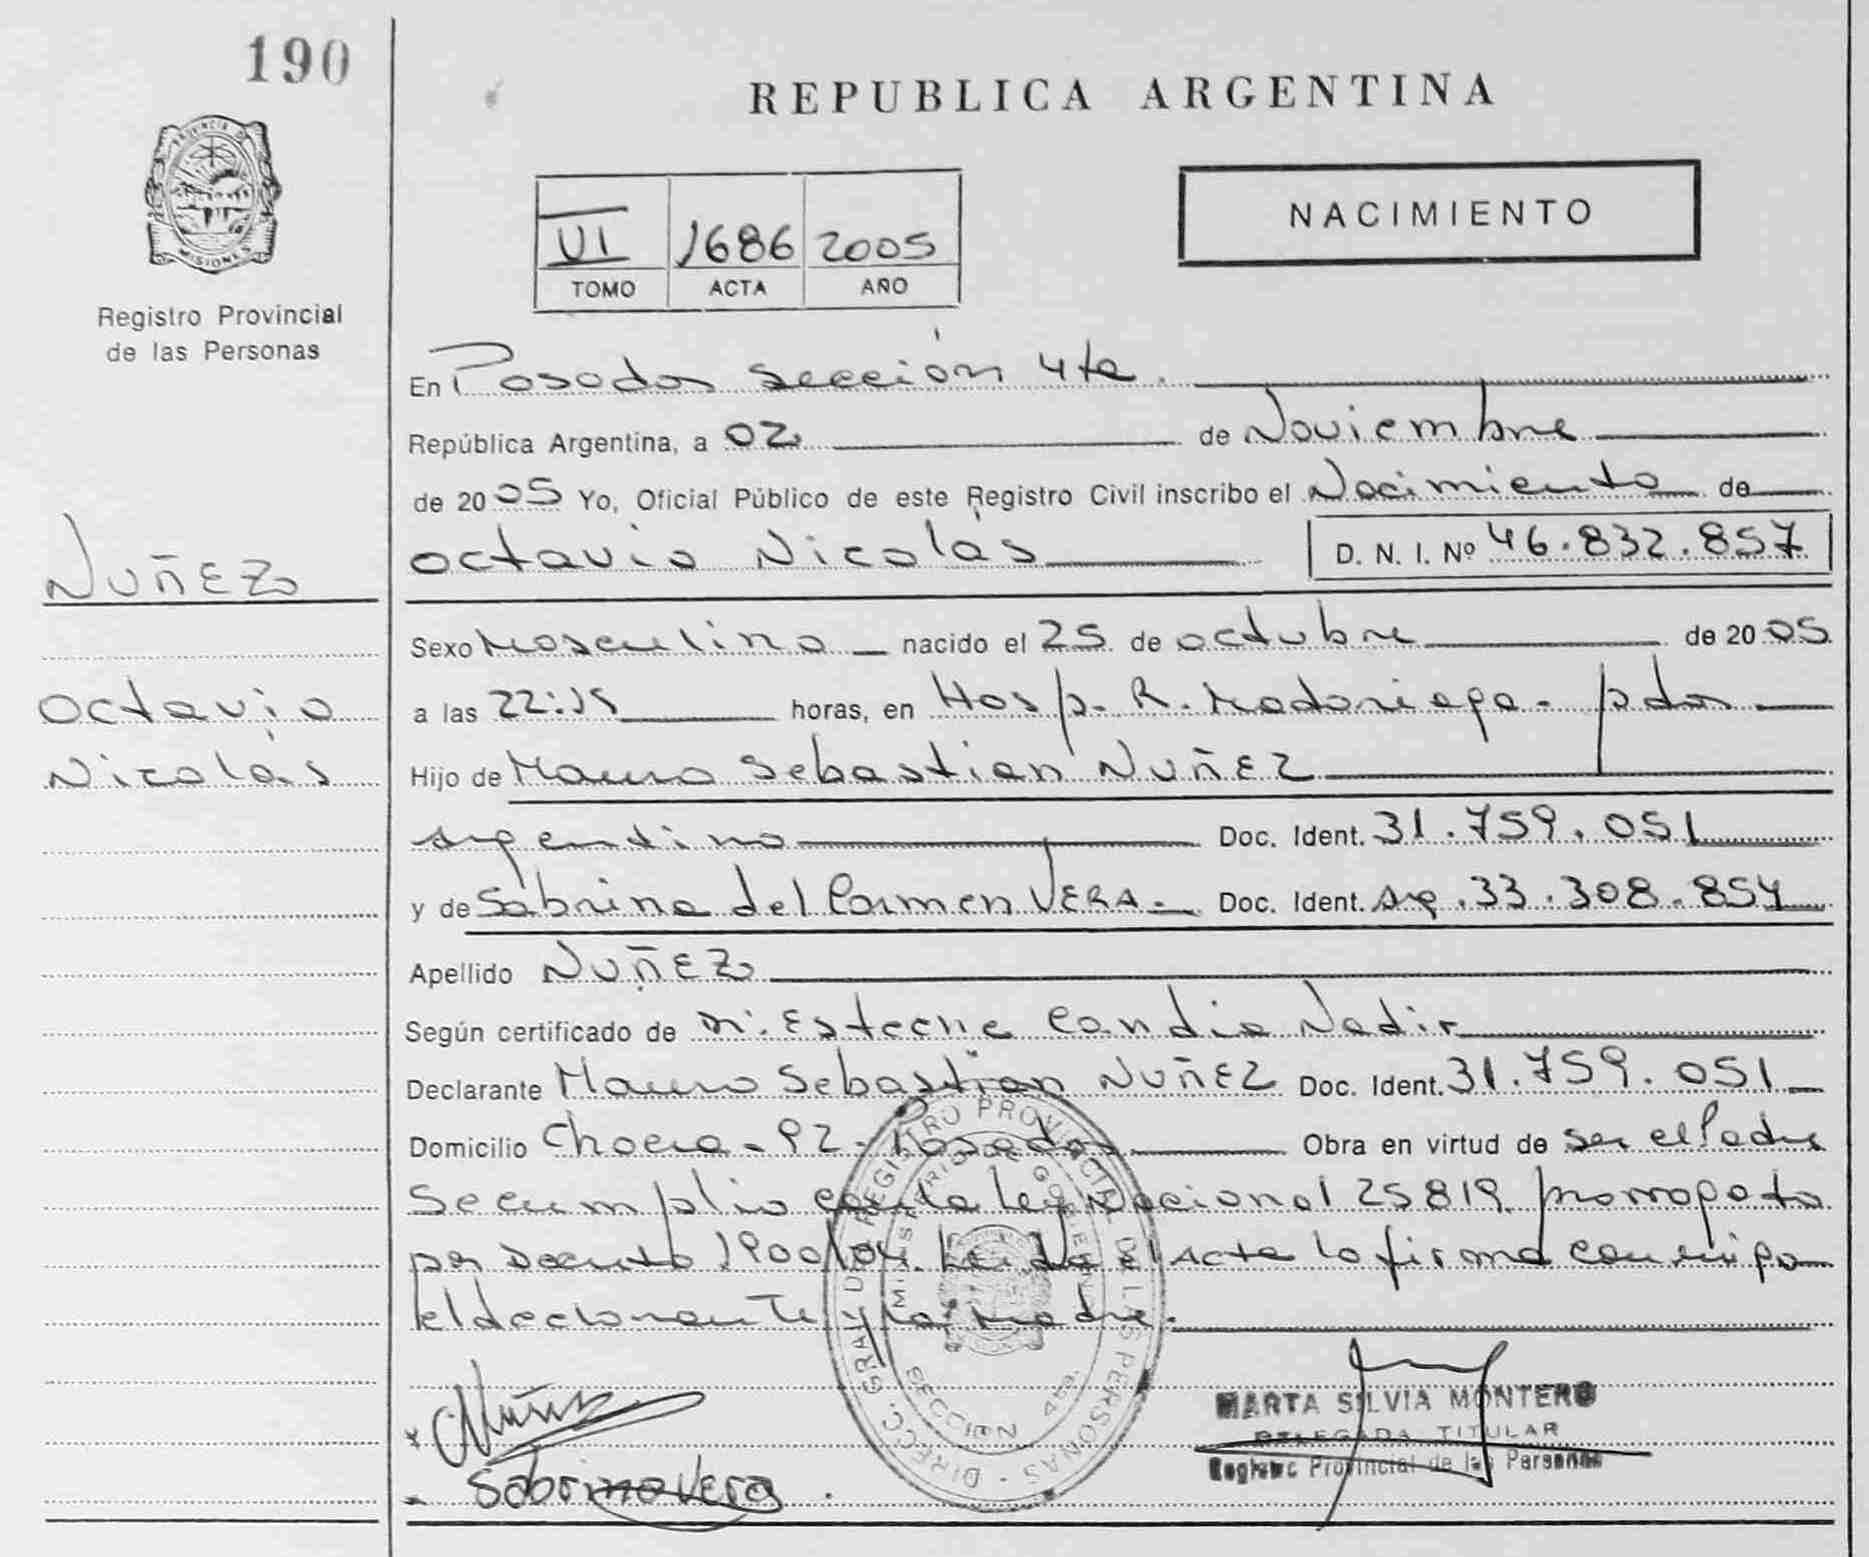 190
REPUBLICA ARGENTINA
PROVINCIA DE
MISIONES
Registro Provincial
de las Personas
VI 1686 2005
TOMO ACTA AÑO
NACIMIENTO
En Posadas sección 4ta.
República Argentina, a 02 de Noviembre
de 2005 Yo, Oficial Público de este Registro Civil inscribo el Nacimiento de
Octavio Nicolás D. N. I. Nº 46.832.857
NUÑEZ
Octavio
Nicolás
Sexo Masculino nacido el 25 de octubre de 2005
a las 22:15 horas, en Hosp. R. Madariaga - pdas
Hijo de Mauro Sebastian NUÑEZ
argentino Doc. Ident. 31.759.051
y de Sabrina del Carmen VERA - Doc. Ident. Arg. 33.308.854
Apellido NUÑEZ
Según certificado de Esteche Candia Nadir
Declarante Mauro Sebastian NUÑEZ Doc. Ident. 31.759.051
Domicilio - 92 - Posadas Obra en virtud de ser el Padre
Se cumplio con la ley Nacional 25819 prorrogata
por Decreto 1900/04. Leída el Acta la firma conmigo
el declarante y la madre.
DIRECC. GRAL. DE REGISTRO PROVINCIAL DE LAS PERSONAS
MINISTERIO DE GOBIERNO
SECCION 4ta.
Nuñez
Sabrina Vera
MARTA SILVIA MONTERO
DELEGADA TITULAR
Registro Provincial de las Personas